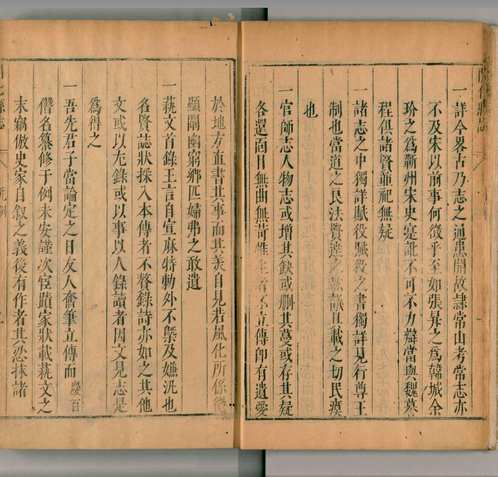 一詳今畧古乃志之通患開故隸常山考常志亦
不及宋以前事何徵乎至如張昇之爲韓城佘
玠之爲蘄州宋史寔訛不可不力辯當與魏某
程俱諸賢並祀無疑
一諸志之中獨詳賦役賦役之書獨詳見行尊王
制也當道之民法賢達之議直載之切民瘼
也
一官師志人物志或增其缺或刪其蔓或存其疑
各還面目無曲無苟 立傳卽有遺愛
於地方直書其事而其美自見若風化所係
顯闡幽窮鄉匹婦弗之敢遺
一蓺文首錄王言自宣麻特勅外不槩及嫌汎也
名賢志狀採入本傳者不贅錄詩亦如之其他
文或以左錄或以事以人錄讀者因文見志是
爲得之
一吾先君子當論定之日友人奮筆立傳而慶百
僭名纂修于例未安謹次宦蹟家狀載蓺文之
末竊倣史家自叙之義後有作者其恕抹諸